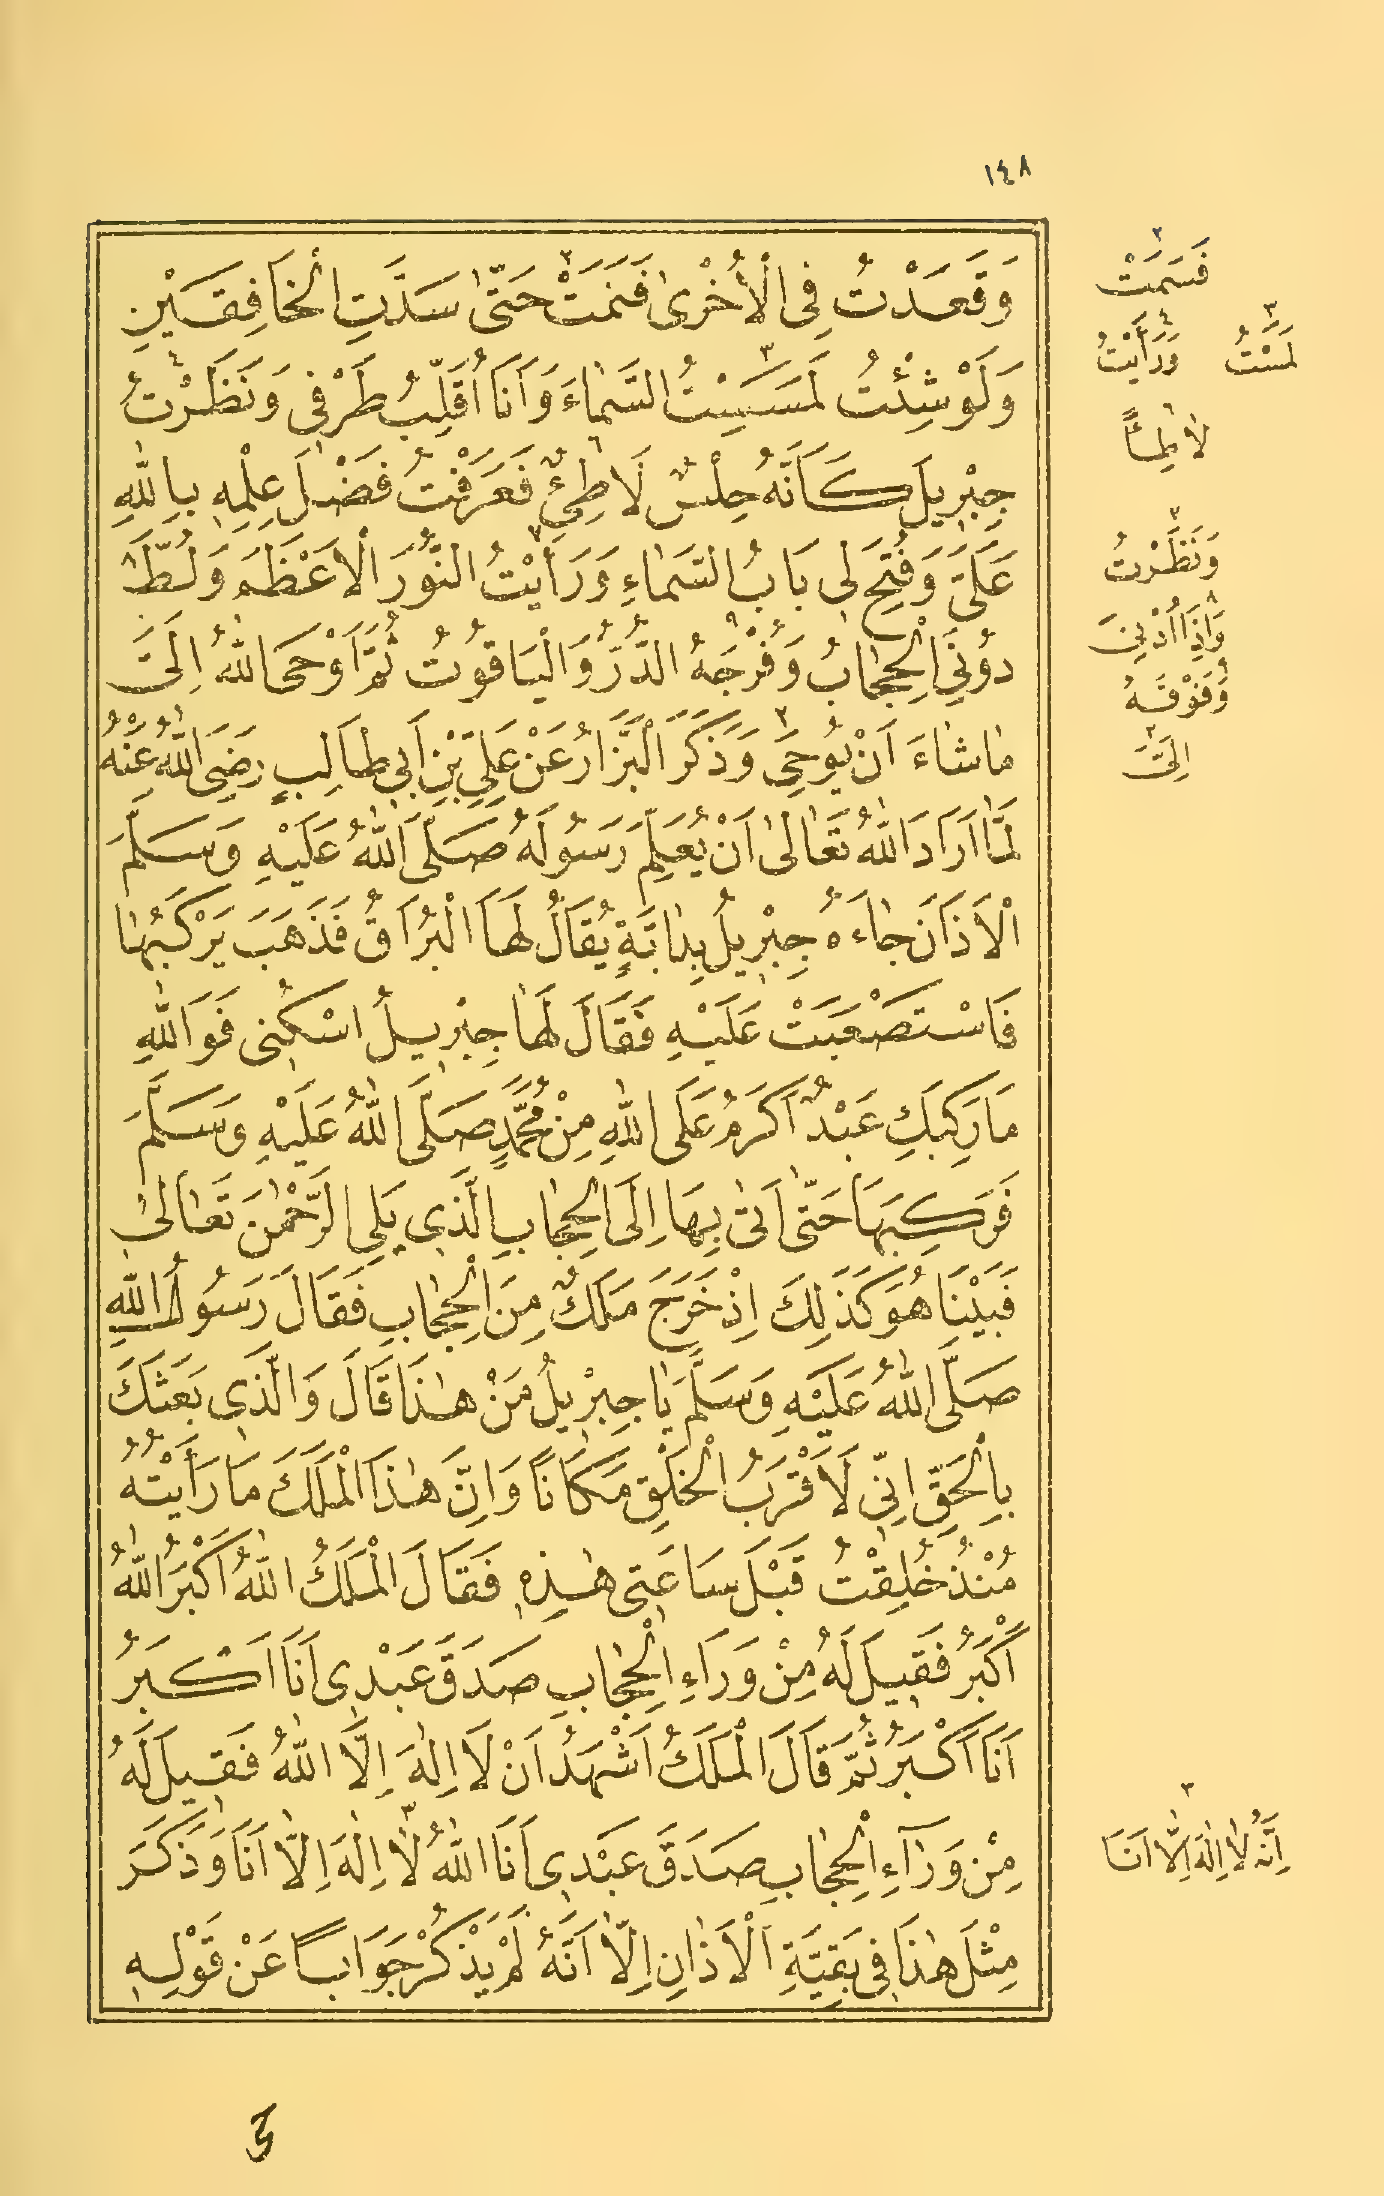 ١٤٨
وَقَعَدْتُ فِى الْاُخْرٰى فَنَمَتْ حَتّٰى سَدَّتِ الْخَافِقَيْنِ
وَلَوْ شِئْتُ لَمَسَيِسْتُ السَّمٰاءَ وَاَنَا اُقَلِّبُ طَرْفِى وَنَظَرْتُ
جِبْرِيلَ كَاَنَّهُ حِلْسٌ لَاطِئٌ فَعَرَفْتُ فَضْلَ عِلْمِهِ بِاللّٰهِ
عَلَىَّ وَفُتِحَ لِى بَابُ السَّمٰاءِ وَرَاَيْتُ النُّورَ الْاَعْظَمَ وَلُطَّ
دُونِىَ الْحِجٰابُ وَفُرْجَهُ الدُّرُّ وَالْيَاقُوتُ ثُمَّ اَوْحَى اللّٰهُ اِلَىَّ
مٰاشٰاءَ اَنْ يُوحِىَ وَذَكَرَ الْبَزَّارُ عَنْ عَلِىِّ بْنِ اَبِى طٰالِبٍ رَضِىَ اللّٰهُ عَنْهُ
لَمَّا اَرَادَ اللّٰهُ تَعَالٰى اَنْ يُعَلِّمَ رَسُولَهُ صَلَّى اللّٰهُ عَلَيْهِ وَسَلَّمَ
الْاَذَانَ جٰاءَهُ جِبْرِيلُ بِدٰابَّةٍ يُقَالُ لَهَا الْبُرَاقُ فَذَهَبَ يَرْكَبُهٰا
فَاسْتَصْعَبَتْ عَلَيْهِ فَقَالَ لَهٰا جِبْرِيلُ اسْكُنِى فَوَاللّٰهِ
مَا رَكِبَكِ عَبْدٌ اَكْرَمُ عَلَى اللّٰهِ مِنْ مُحَمَّدٍ صَلَّى اللّٰهُ عَلَيْهِ وَسَلَّمَ
فَرَكِبَهَا حَتّٰى اَتٰى بِهَا اِلَى الْحِجٰابِ الَّذِى يَلِى الرَّحْمٰنَ تَعَالٰى
فَبَيْنَا هُوَ كَذٰلِكَ اِذْ خَرَجَ مَلَكٌ مِنَ الْحِجٰابِ فَقَالَ رَسُولُ اللّٰهِ
صَلَّى اللّٰهُ عَلَيْهِ وَسَلَّمَ يٰا جِبْرِيلُ مَنْ هٰذَا قَالَ وَالَّذِى بَعَثَكَ
بِالْحَقِّ اِنِّى لَاَقْرَبُ الْخَلْقِ مَكَانًا وَاِنَّ هٰذَا الْمَلَكَ مَا رَاَيْتُهُ
مُنْذُ خُلِقْتُ قَبْلَ سَاعَتِى هٰذِهِ فَقَالَ الْمَلَكُ اللّٰهُ اَكْبَرُ اللّٰهُ
اَكْبَرُ فَقِيلَ لَهُ مِنْ وَرَاءِ الْحِجٰابِ صَدَقَ عَبْدِى اَنَا اَكْبَرُ
اَنَا اَكْبَرُ ثُمَّ قَالَ الْمَلَكُ اَشْهَدُ اَنْ لَا اِلٰهَ اِلَّا اللّٰهُ فَقِيلَ لَهُ
مِنْ وَرَآءِ الْحِجٰابِ صَدَقَ عَبْدِى اَنَا اللّٰهُ لَا اِلٰهَ اِلَّا اَنَا وَذَكَرَ
مِثْلَ هٰذَا فِى بَقِيَّةِ الْاَذٰانِ اِلَّا اَنَّهُ لَمْ يَذْكُرْ جَوَابًا عَنْ قَوْلِهِ
٢
فَسَمَتْ
٣ ٤
لَمَسْتُ وَرَاَيْتُ
لَاطِئًا
٢
وَنَظَرْتُ
٨
وَاِذَا اُدْنِىَ
وَفَوْقَهُ
٢
اِلَىَّ
٣
اِنَّهُ لَا اِلٰهَ اِلَّا اَنَا